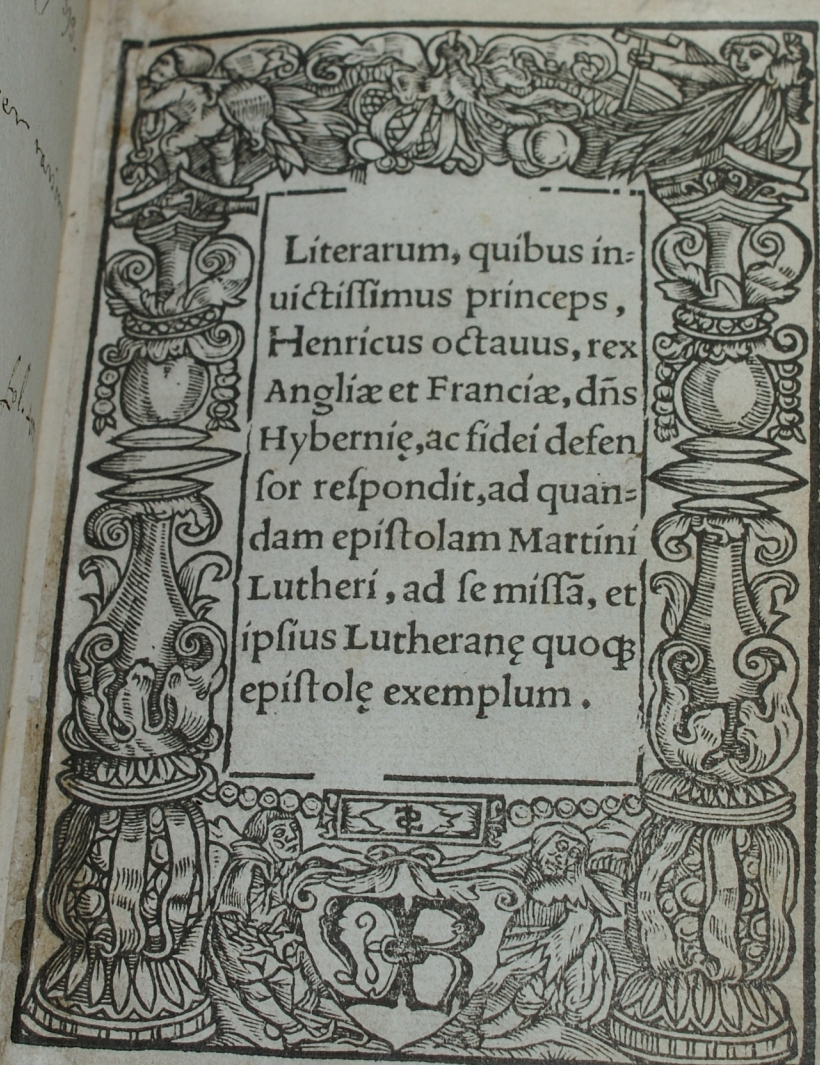 Literarum, quibus in=
uictiſſimus princeps,
Henricus octauus, rex
Angliæ et Franciæ, dñs
Hybernię, ac fidei defen
ſor reſpondit, ad quan=
dam epiſtolam Martini
Lutheri, ad ſe miſſã, et
ipſius Lutheranę quoqꝫ
epiſtolę exemplum.